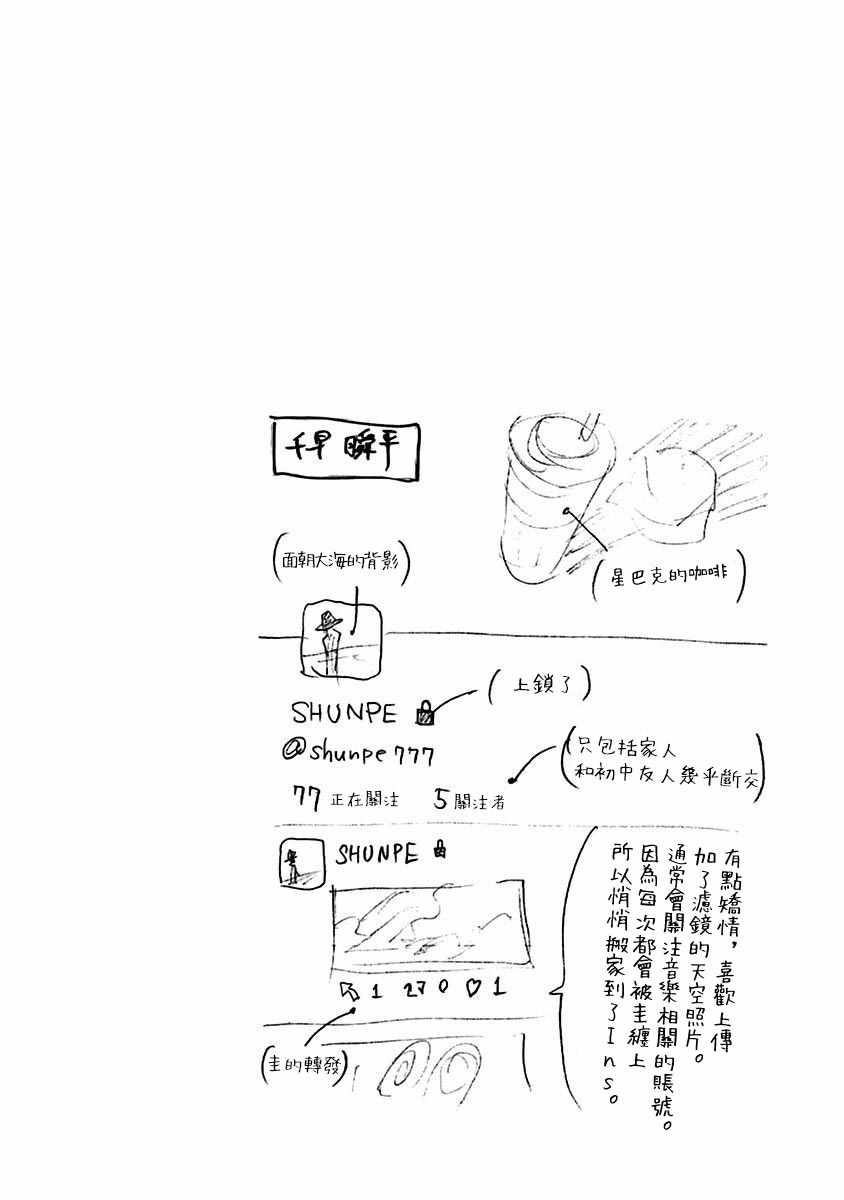 千早 瞬平
(面朝大海的背影)
(星巴克的咖啡)
SHUNPE
(上鎖了)
@shunpe777
(只包括家人
和初中友人幾乎斷交)
77 正在關注 5 關注者
SHUNPE
1 27 0 ♡ 1
(圭的轉發)
有點矯情，喜歡上傳
加了濾鏡的天空照片。
通常會關注音樂相關的賬號。
因為每次都會被圭纏上
所以悄悄搬家到了Ins。